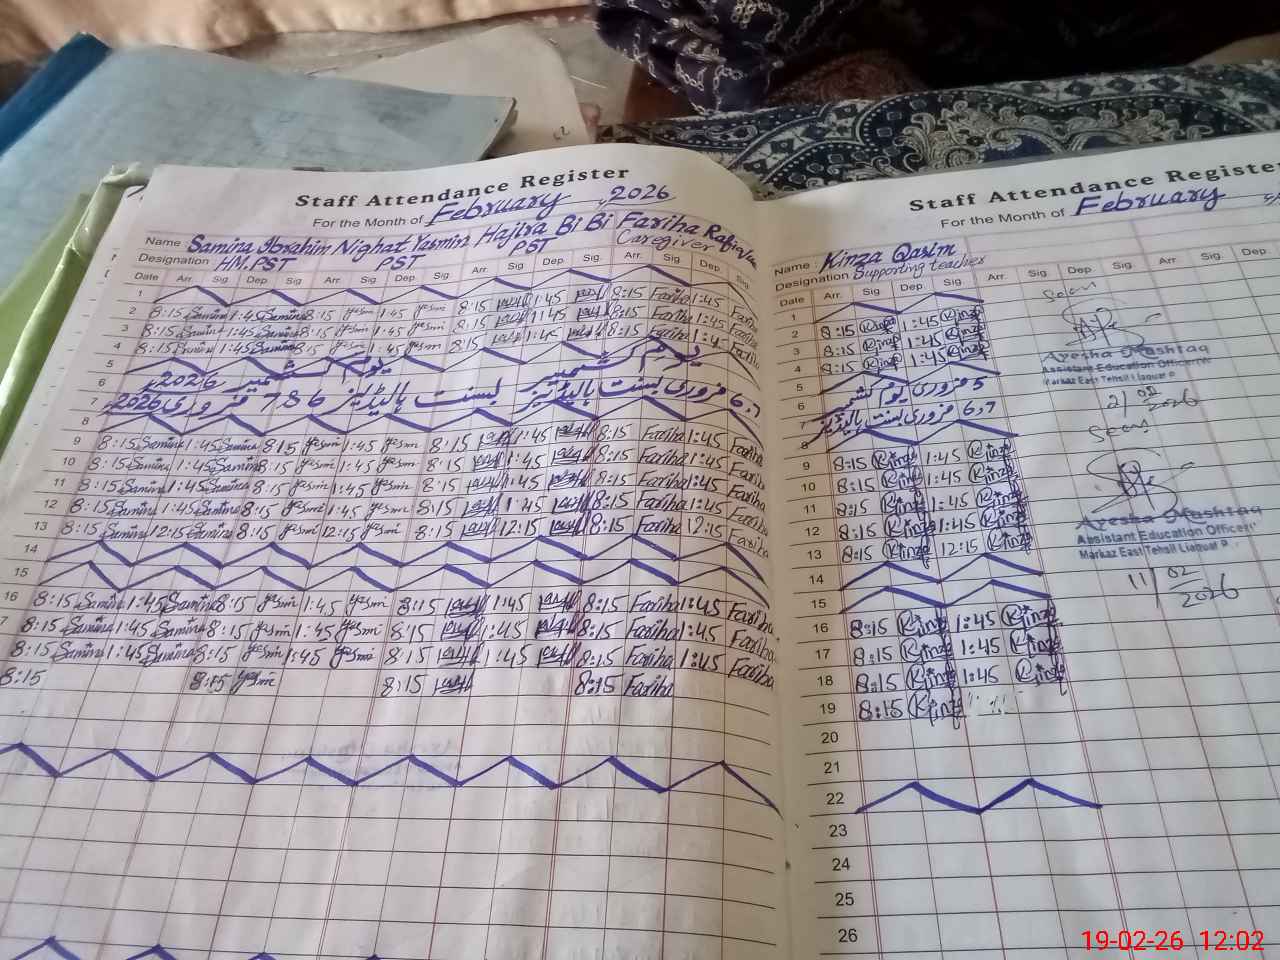 Staff Attendance Register
For the Month of February 2026
Name Samina Ibrahim Nighat Yasmin Hajira Bi Bi Fariha Rafiq
Designation HM.PST PST PST Caregiver
Date Arr. Sig. Dep. Sig. Arr. Sig. Dep. Sig. Arr. Sig. Dep. Sig. Arr. Sig. Dep. Sig.
1
2 8:15 Samina 1:45 Samina 8:15 Yasmin 1:45 Yasmin 8:15 1:45 8:15 Fariha 1:45 Fariha
3 8:15 Samina 1:45 Samina 8:15 Yasmin 1:45 Yasmin 8:15 1:45 8:15 Fariha 1:45 Fariha
4 8:15 Samina 1:45 Samina 8:15 Yasmin 1:45 Yasmin 8:15 1:45 8:15 Fariha 1:45 Fariha
5 یوم کشمیر 2026 یوم کشمیر
6
7 6,7 فروری بسنت ہالیڈیز بسنت ہالیڈیز 6 & 7 فروری 2026
8
9 8:15 Samina 1:45 Samina 8:15 Yasmin 1:45 Yasmin 8:15 1:45 8:15 Fariha 1:45 Fariha
10 8:15 Samina 1:45 Samina 8:15 Yasmin 1:45 Yasmin 8:15 1:45 8:15 Fariha 1:45 Fariha
11 8:15 Samina 1:45 Samina 8:15 Yasmin 1:45 Yasmin 8:15 1:45 8:15 Fariha 1:45 Fariha
12 8:15 Samina 1:45 Samina 8:15 Yasmin 1:45 Yasmin 8:15 1:45 8:15 Fariha 1:45 Fariha
13 8:15 Samina 12:15 Samina 8:15 Yasmin 12:15 Yasmin 8:15 12:15 8:15 Fariha 12:15 Fariha
14
15
16 8:15 Samina 1:45 Samina 8:15 Yasmin 1:45 Yasmin 8:15 1:45 8:15 Fariha 1:45 Fariha
7 8:15 Samina 1:45 Samina 8:15 Yasmin 1:45 Yasmin 8:15 1:45 8:15 Fariha 1:45 Fariha
8:15 Samina 1:45 Samina 8:15 Yasmin 1:45 Yasmin 8:15 1:45 8:15 Fariha 1:45 Fariha
8:15 8:15 Yasmin 8:15 8:15 Fariha
Staff Attendance Register
For the Month of February
Name Kinza Qasim
Designation Supporting teacher
Date Arr. Sig. Dep. Sig. Arr. Sig. Dep. Sig. Arr. Sig. Dep.
1
2 8:15 Kinza 1:45 Kinza
3 8:15 Kinza 1:45 Kinza
4 8:15 Kinza 1:45 Kinza
5 5 فروری یوم کشمیر
6
7 6,7 فروری بسنت ہالیڈیز
8
9 8:15 Kinza 1:45 Kinza
10 8:15 Kinza 1:45 Kinza
11 8:15 Kinza 1:45 Kinza
12 8:15 Kinza 1:45 Kinza
13 8:15 Kinza 12:15 Kinza
14
15
16 8:15 Kinza 1:45 Kinza
17 8:15 Kinza 1:45 Kinza
18 8:15 Kinza 1:45 Kinza
19 8:15 Kinza
20
21
22
23
24
25
26
Seen
Ayesha Mushtaq
Assistant Education Officer
Markaz East Tehsil Liaquat P
2/02/2026
Seen
Ayesha Mushtaq
Assistant Education Officer
Markaz East Tehsil Liaquat P
11/02/2026
19-02-26 12:02